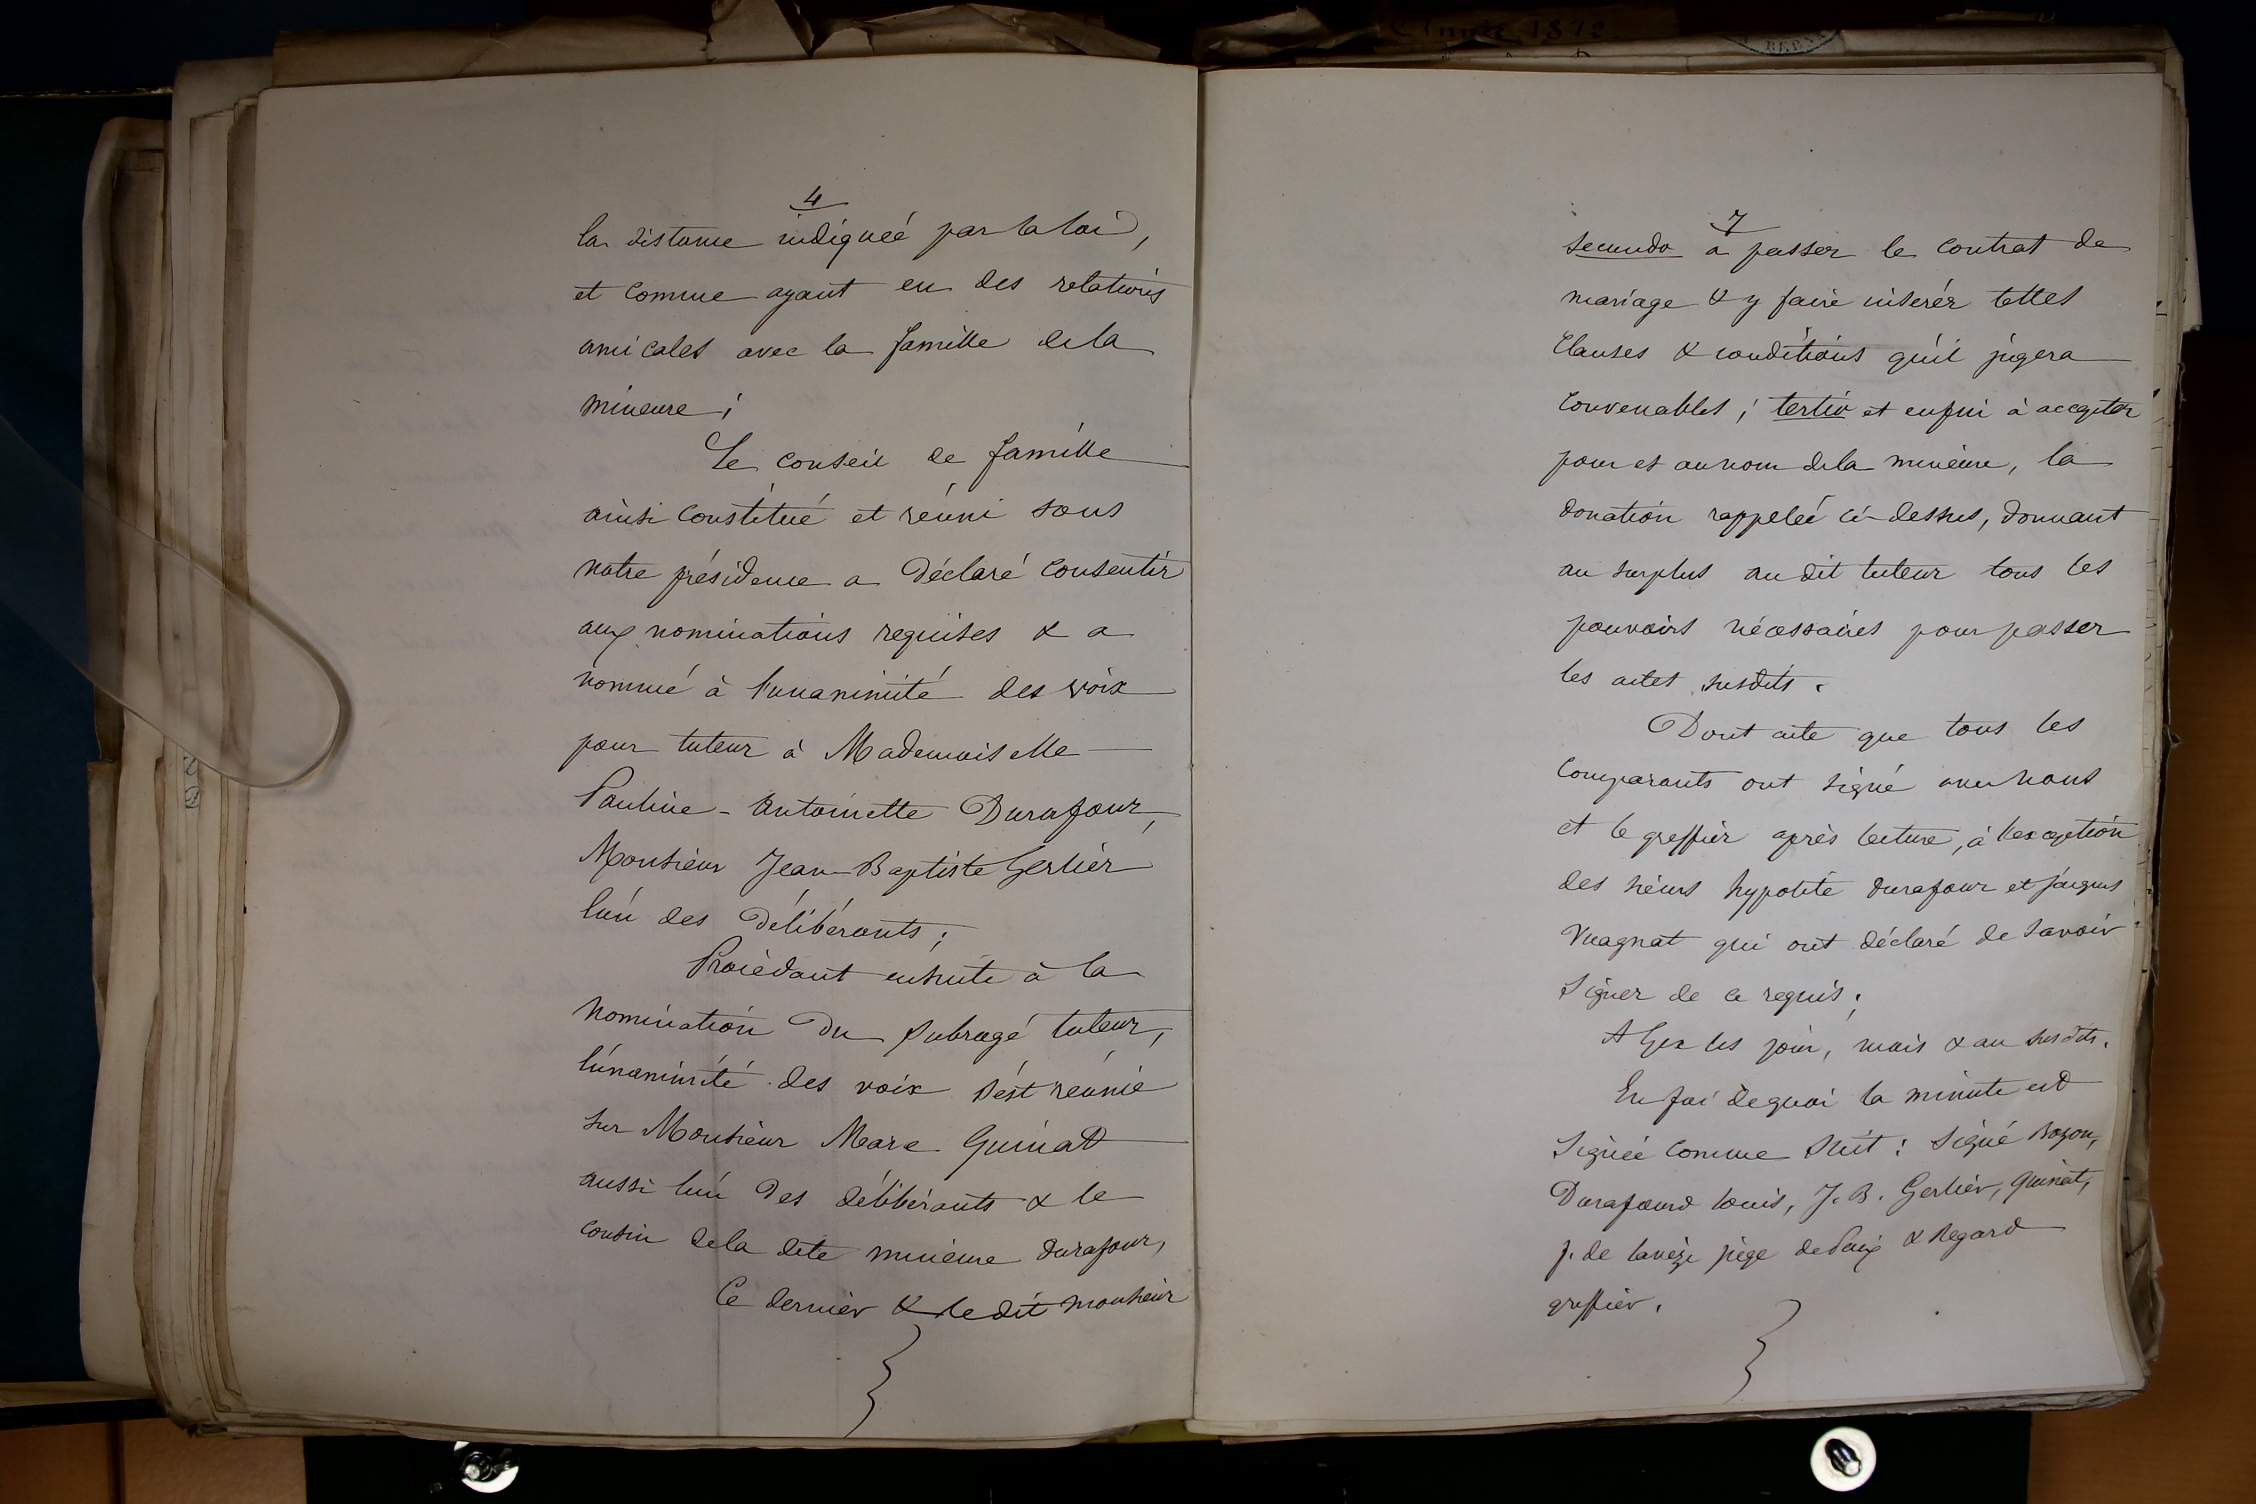 Année 1872
4
la distance indiquée par la loi,
et comme ayant eu des relations
amicales avec la famille de la
mineure;
Le conseil de famille
ainsi constitué et réuni sous
notre présidence a déclaré consentir
aux nominations requises & a
nommé à l'unanimité des voix
pour tuteur à Mademoiselle
Pauline-Antoinette Durafour,
Monsieur Jean-Baptiste Gerlier
l'un des délibérants;
Procédant ensuite à la
nomination du subrogé tuteur,
l'unanimité des voix s'est réunie
sur Monsieur Marc Guinat
aussi l'un des délibérants & le
cousin de la dite mineure durafour,
Ce dernier & le dit monsieur
7
secundo à passer le contrat de
mariage & y faire insérer telles
clauses & conditions qu'il jugera
convenables; tertio et enfin à accepter
pour et au nom de la mineure, la
donation rappelée ci-dessus, donnant
au surplus au dit tuteur tous les
pouvoirs nécessaires pour passer
les actes susdits.
Dont acte que tous les
comparants ont signé avec nous
et le greffier après lecture, à l'exception
des sieurs hypolite durafour et jacques
Vuagnat qui ont déclaré de savoir
signer de ce requis;
A Gex les jour, mois & an susdits.
En foi de quoi la minute est
signée comme suit: signé Bozon,
Durafourd louis, J. B. Gerlier, Guinat,
j. de juge de Paix & Regard
greffier.